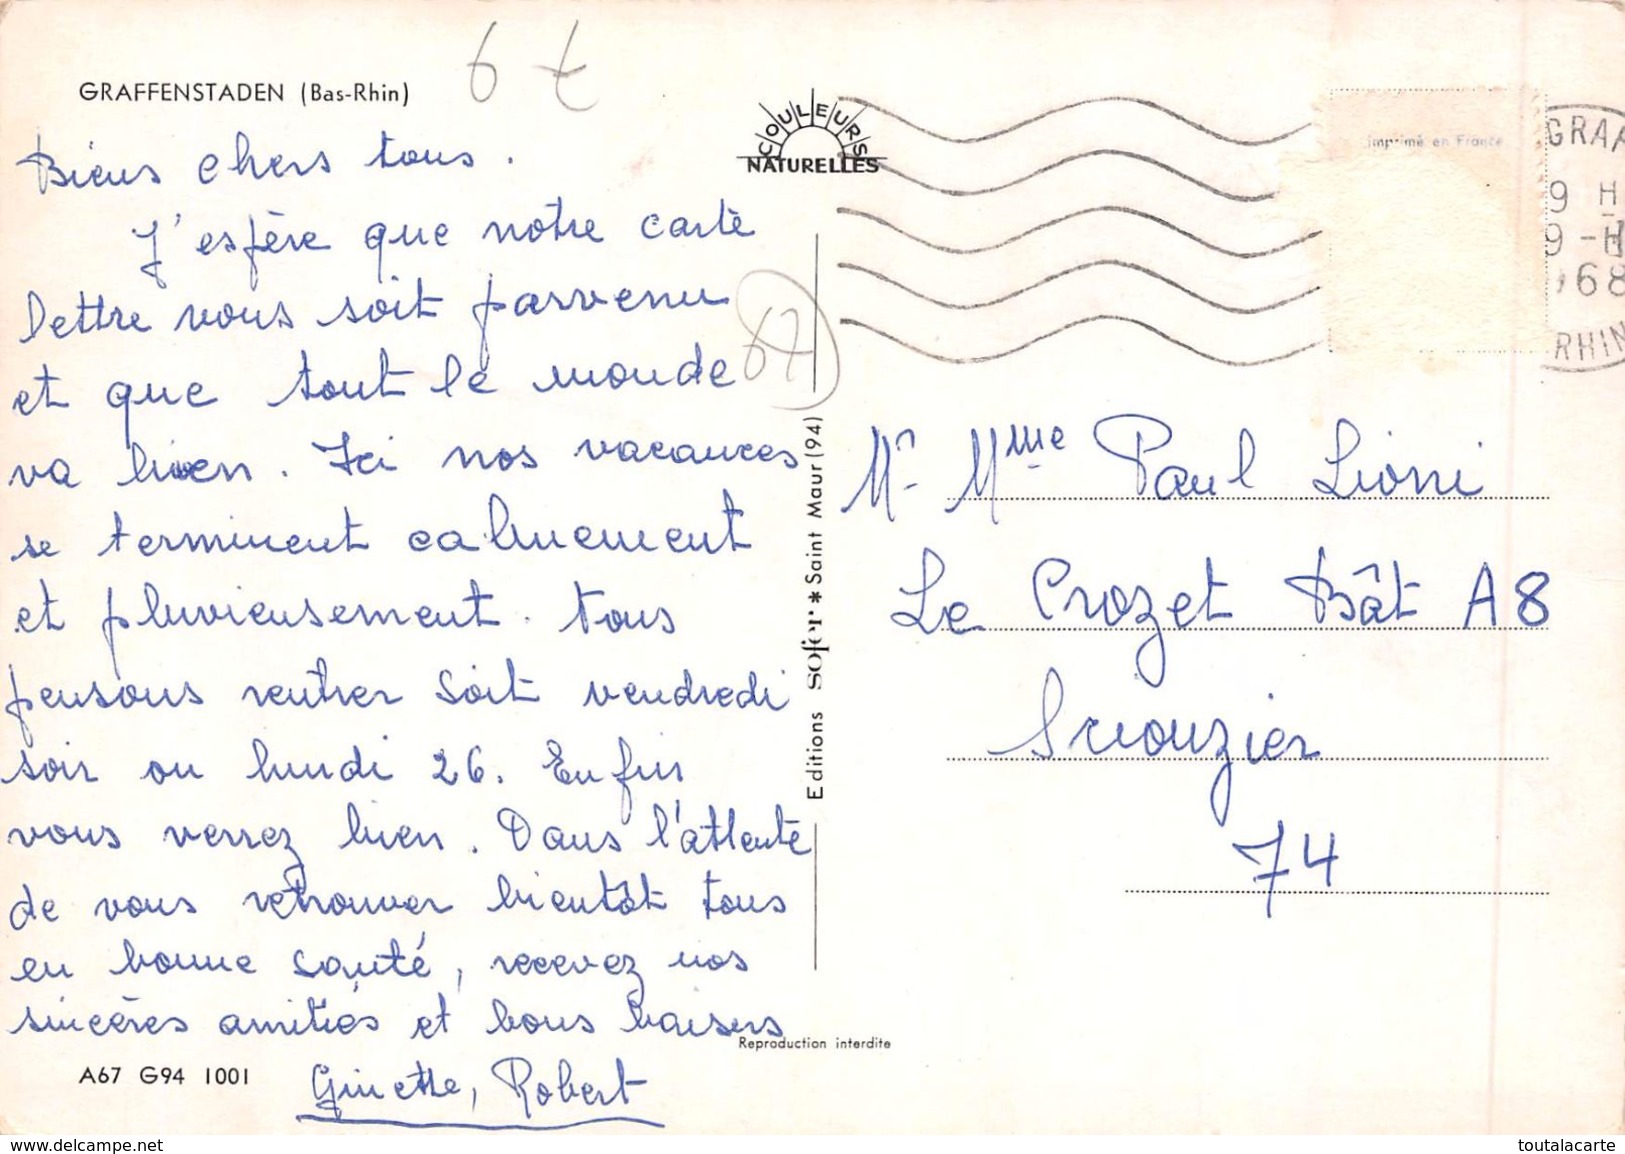 6 €
GRAFFENSTADEN (Bas-Rhin)
Biens chers tous.
J'espère que notre carte
lettre vous soit parvenu
et que tout le monde
va bien. Ici nos vacances
se terminent calmement
et pluvieusement. Nous
pensons rentrer soit vendredi
soir ou lundi 26. Enfin
vous verrez bien. Dans l'attente
de vous retrouver bientôt tous
en bonne santé, recevez nos
sincères amitiés et bons baisers
Ginette, Robert
A67 G94 1001
67
COULEURS
NATURELLES
Editions sofer * Saint Maur (94)
Reproduction interdite
Imprimé en France
GRAF
9 H
9 -
1968
RHIN
Mr Mme Paul Lioni
Le Crozet Bât A8
Scionzier
74
delcampe.net
toutalacarte